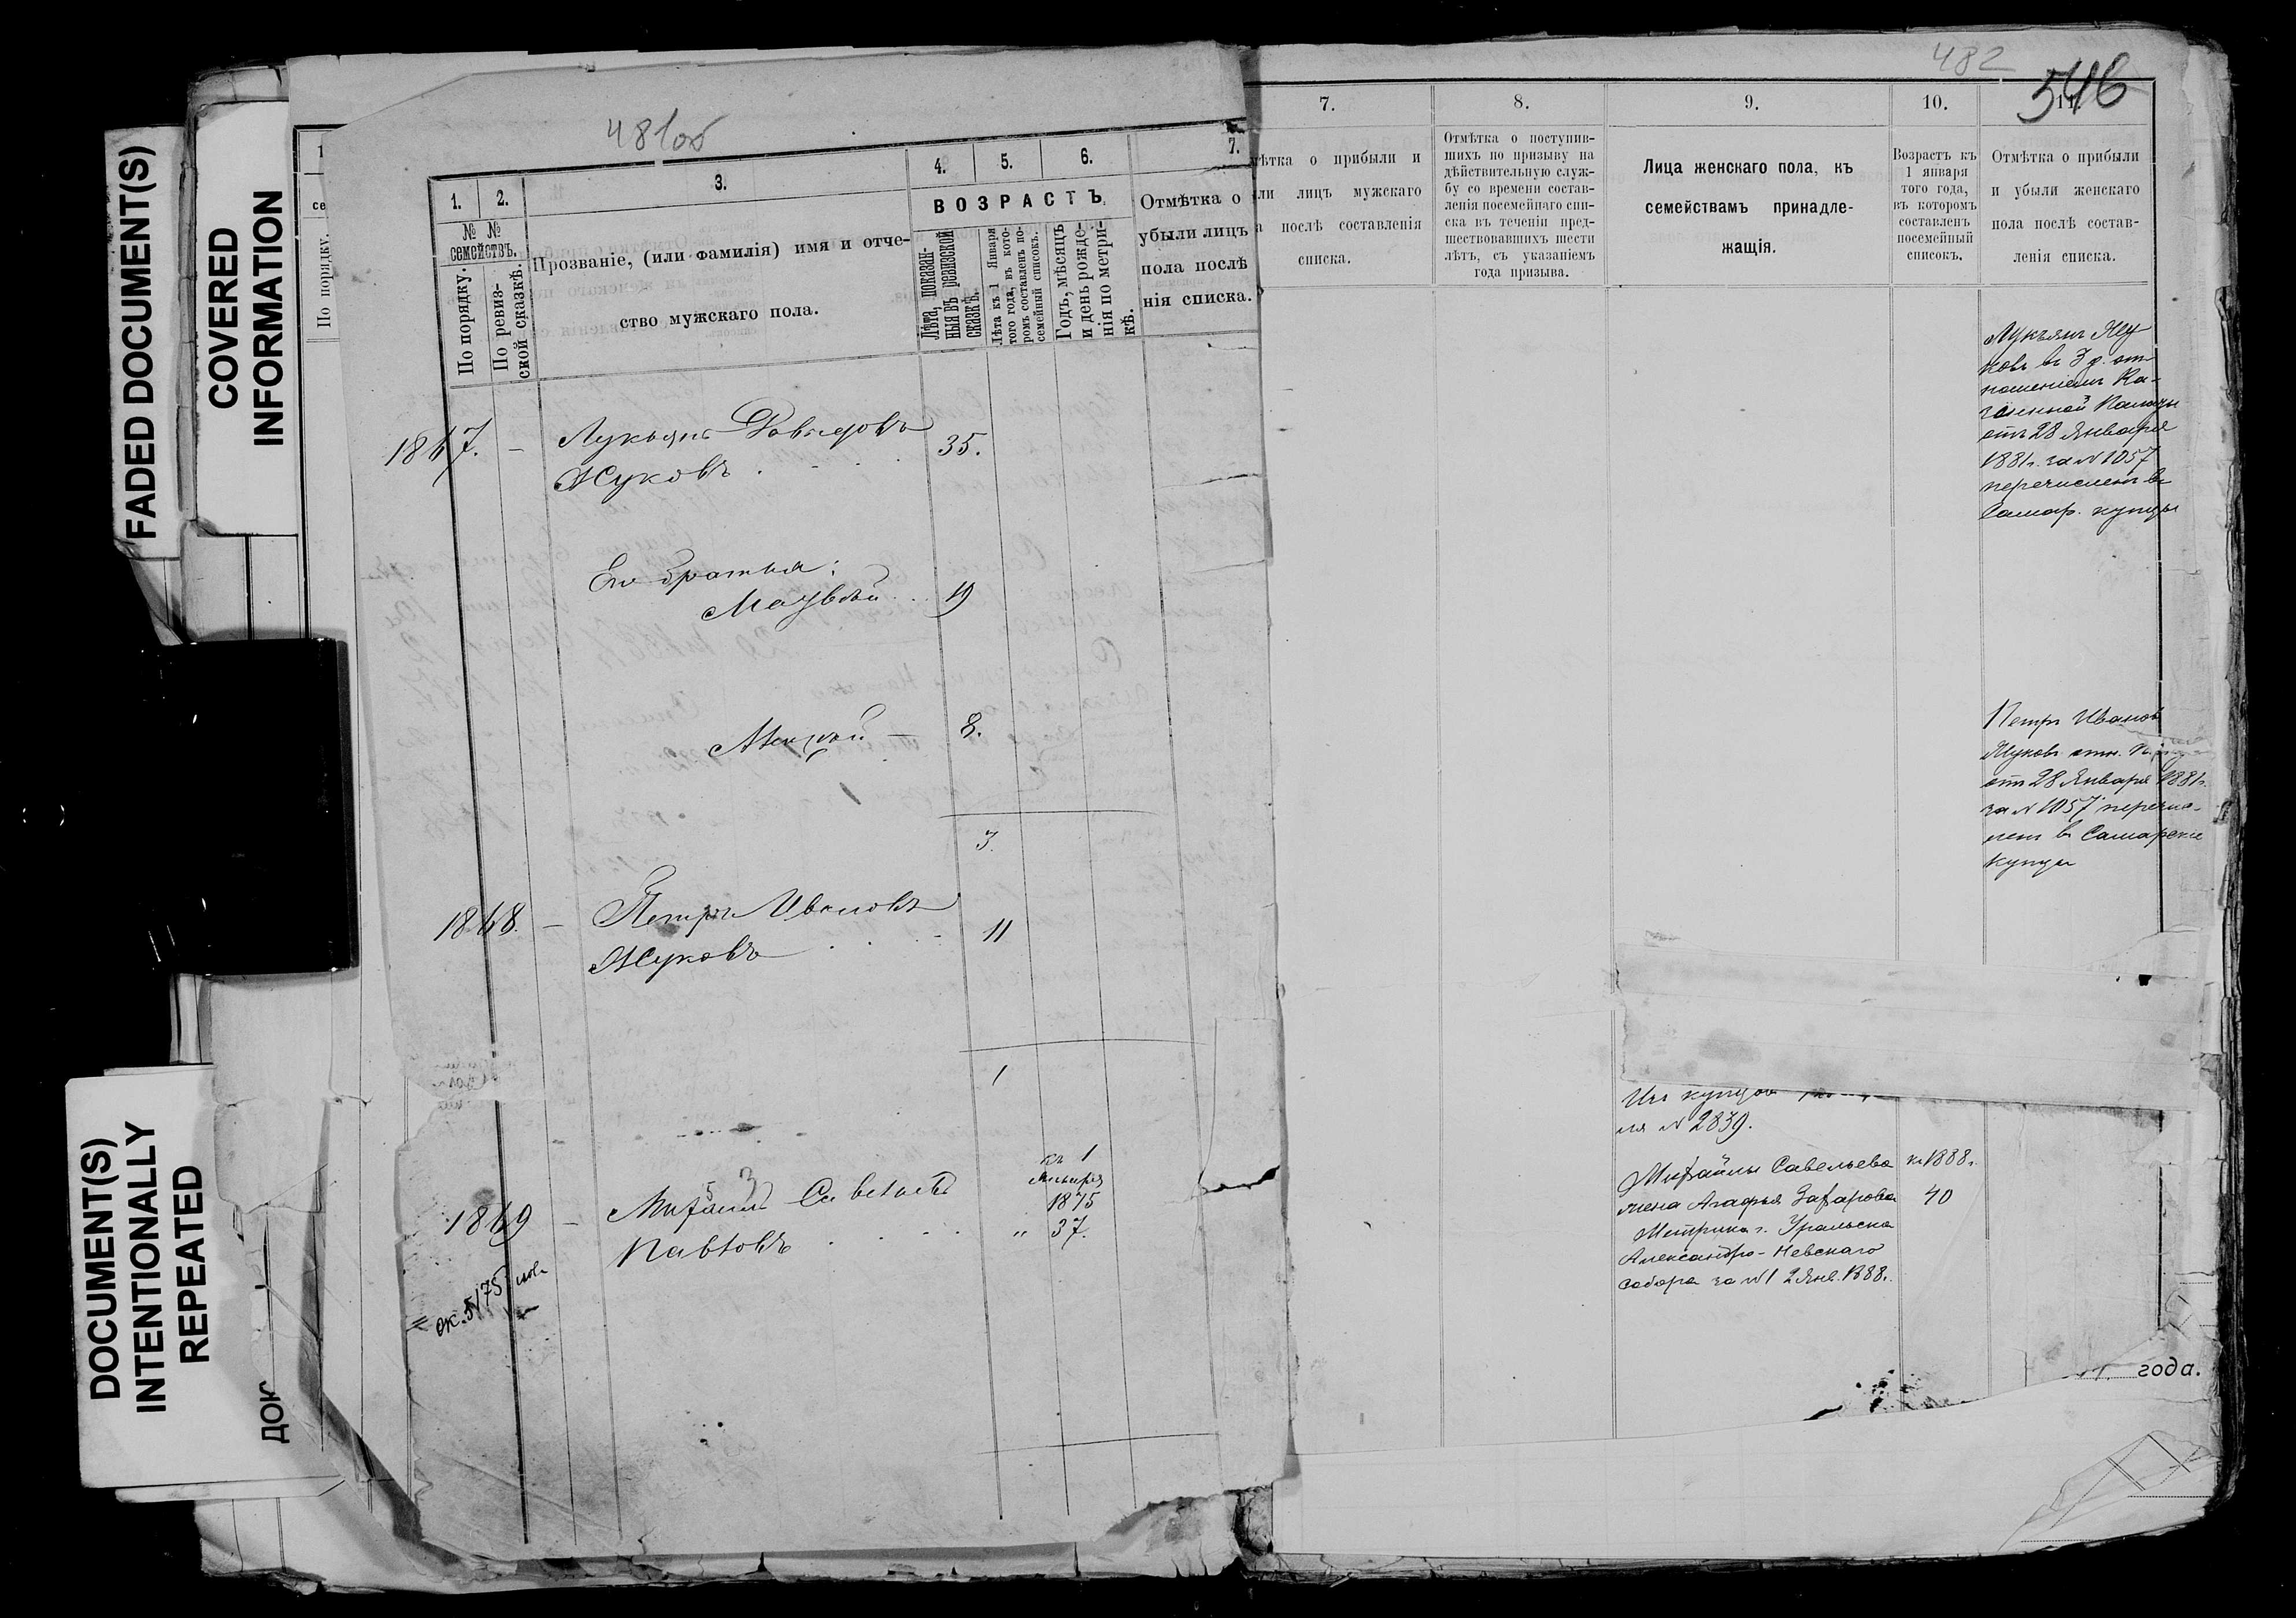 FADED DOCUMENT(S)
COVERED
INFORMATION
DOCUMENT(S)
INTENTIONALLY
REPEATED
ДОК
По порядку.
481об
1. 2. 3. 4. 5. 6. 7.
№ №
семействъ.
По порядку.
По ревиз-
ской сказкѣ.
Прозваніе, (или фамилія) имя и отче-
ство мужскаго пола.
ВОЗРАСТЪ
Лѣта, показан-
ныя въ ревизской
сказкѣ.
Лѣта къ 1 Января
того года, въ кото-
ромъ составленъ по-
семейный списокъ.
Годъ, мѣсяцъ
и день рожде-
нія по метри-
кѣ.
Отмѣтка о
убыли лицъ
пола послѣ
нія списка.
1847. – Лукьянъ Давыдовъ
Жуковъ 35.
Его братья:
Матвѣй 19
Алексѣй – 8.
3.
1848. – Петръ Ивановъ
Жуковъ 11
1
1849 – Михаилъ Савельевъ
Павловъ
къ 1
Января
1875
" 37.
482
546
7. 8. 9. 10. 11.
мѣтка о прибыли и
ли лицъ мужскаго
а послѣ составленія
списка.
Отмѣтка о поступив-
шихъ по призыву на
дѣйствительную служ-
бу со времени состав-
ленія посемейнаго спи-
ска въ теченіи пред-
шествовавшихъ шести
лѣтъ, съ указаніемъ
года призыва.
Лица женскаго пола, къ
семействамъ принадле-
жащія.
Возрастъ къ
1 января
того года,
въ которомъ
составленъ
посемейный
списокъ.
Отмѣтка о прибыли
и убыли женскаго
пола послѣ состав-
ленія списка.
Лукьянъ Жу
ковъ въ 3 г. от
ношеніемъ Ка-
зенной Палаты
отъ 28 Января
1881г. за № 1057
перечисленъ въ
Самар. купцы
Петръ Ивановъ
Жуковъ отн.
отъ 28 Января 1881г.
за № 1057 перечис-
ленъ въ Самарскіе
купцы
Изъ купцовъ
ля № 2839.
Михайлы Савельева къ 1888г.
жена Агафья Захарова 40
Метрика г. Уральска
Александро-Невскаго
собора за № 1 2 Янв. 1888г.
года.